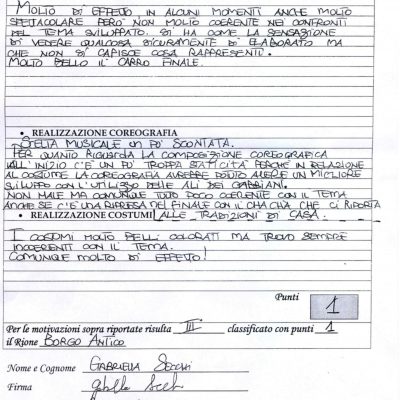 MOLTO DI EFFETTO, IN ALCUNI MOMENTI ANCHE MOLTO
SPETTACOLARE PERÒ NON MOLTO COERENTE NEI CONFRONTI
DEL TEMA SVILUPPATO. SI HA COME LA SENSAZIONE
DI VEDERE QUALCOSA SICURAMENTE DI ELABORATO MA
CHE NON SI CAPISCE COSA RAPPRESENTI.
MOLTO BELLO IL CARRO FINALE.
• REALIZZAZIONE COREOGRAFIA
SCELTA MUSICALE UN PO' SCONTATA.
PER QUANTO RIGUARDA LA COMPOSIZIONE COREOGRAFICA
ALL'INIZIO C'È UN PO' TROPPA STATICITÀ PERCHÉ IN RELAZIONE
AL COSTUME LA COREOGRAFIA AVREBBE POTUTO AVERE UN MIGLIORE
SVILUPPO CON L'UTILIZZO DELLE ALI DEI GABBIANI.
NON MALE MA COMUNQUE TUTTO POCO COERENTE CON IL TEMA
ANCHE SE C'È UNA RIPRESA NEL FINALE CON IL CHA CHA CHE CI RIPORTA
• REALIZZAZIONE COSTUMI ALLE TRADIZIONI DI CASA.
I COSTUMI MOLTO BELLI COLORATI MA TROVO SEMPRE
INCOERENTI CON IL TEMA.
COMUNQUE MOLTO DI EFFETTO!
Punti 1
Per le motivazioni sopra riportate risulta III classificato con punti 1
il Rione BORGO ANTICO
Nome e Cognome GABRIELLA SECCHI
Firma Gabriella Secchi